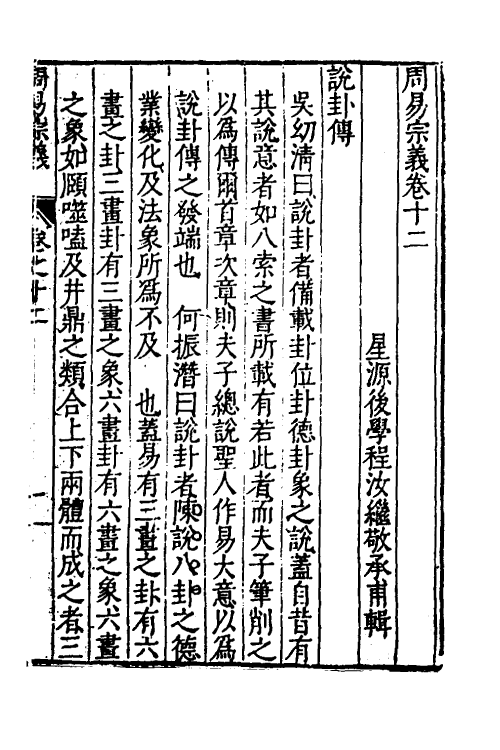 周易宗義卷十二
星源後學程汝繼敬承甫輯
說卦傳
吳幼清曰說卦者備載卦位卦德卦象之說蓋自昔有
其說意者如八索之書所載有若此者而夫子筆削之
以爲傳爾首章次章則夫子總說聖人作易大意以爲
說卦傳之發端也 何振潛曰說卦者陳說八卦之德
業變化及法象所爲不及 也蓋易有三畫之卦有六
畫之卦三畫卦有三畫之象六畫卦有六畫之象六畫
之象如頤噬嗑及井鼎之類合上下兩體而成之者三
周易宗義 卷之十二 一